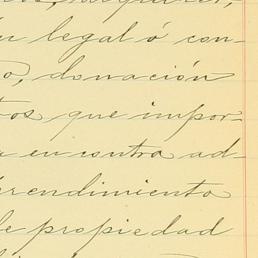 legal ó con-
o, donación
tos que impor-
a en contra ad-
rendimiento
de propiedad